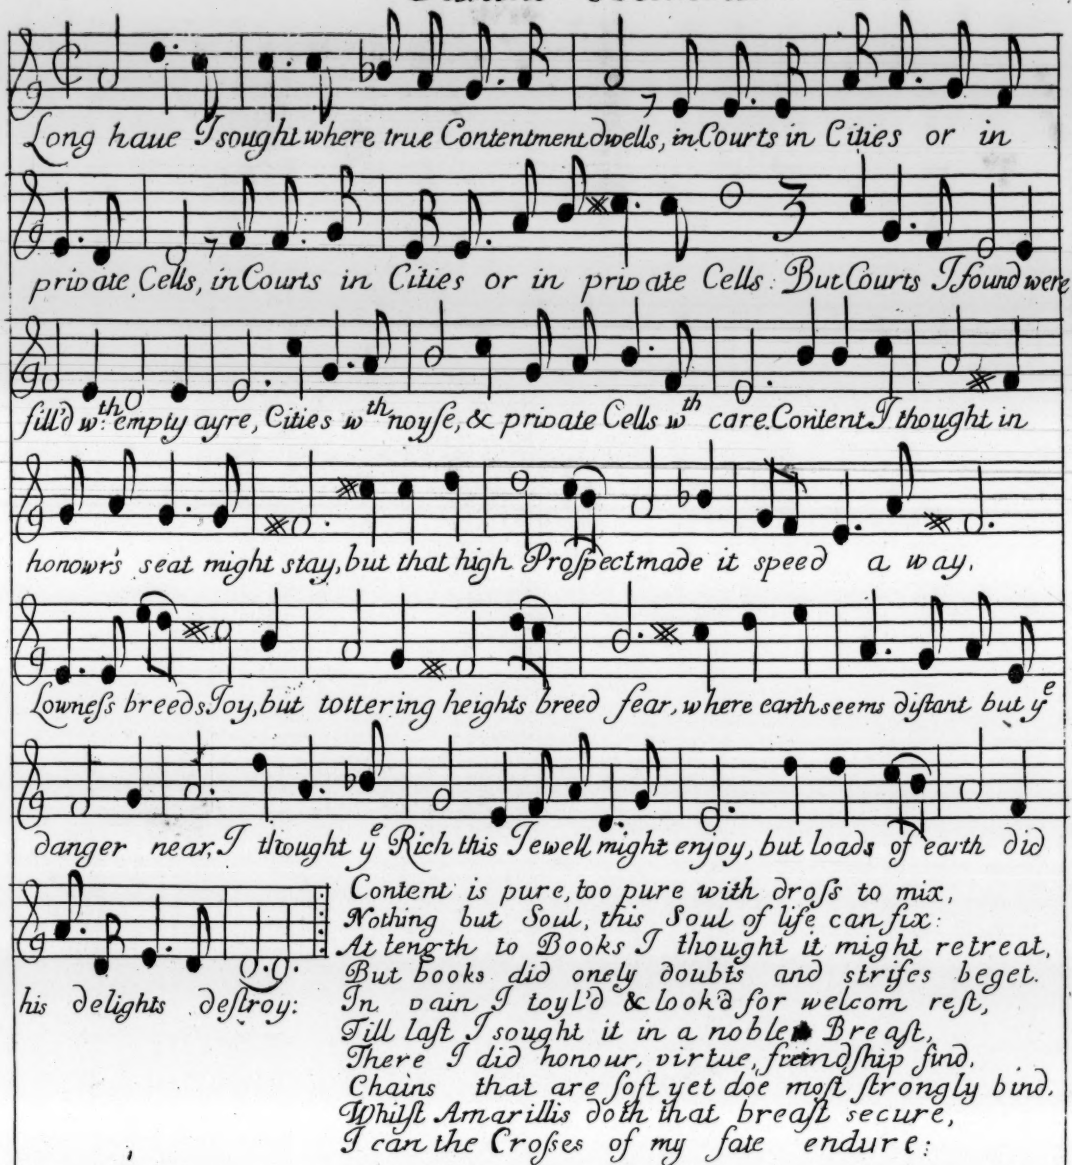 Long haue I sought where true Contentment dwells, in Courts in Cities or in
private Cells, in Courts in Cities or in private Cells: But Courts I found were
fill'd wth. empty ayre, Cities wth noyse, & private Cells wth care. Content I thought in
honowr's seat might stay, but that high Prospect made it speed a way.
Lowneſs breeds Joy, but tottering heights breed fear, where earth seems diſtant but ye
danger near, I thought ye Rich this Jewell might enjoy, but loads of earth did
his delights deſtroy:
Content is pure, too pure with droſs to mix,
Nothing but Soul, this Soul of life can fix:
At length to Books I thought it might retreat,
But books did onely doubts and strifes beget.
In vain I toyl'd & look'd for welcom reſt,
Till laſt I sought it in a noble Breaſt,
There I did honour, virtue, freindſhip find,
Chains that are soft yet doe moſt ſtrongly bind.
Whilſt Amarillis doth that breaſt secure,
I can the Croſses of my fate endure: